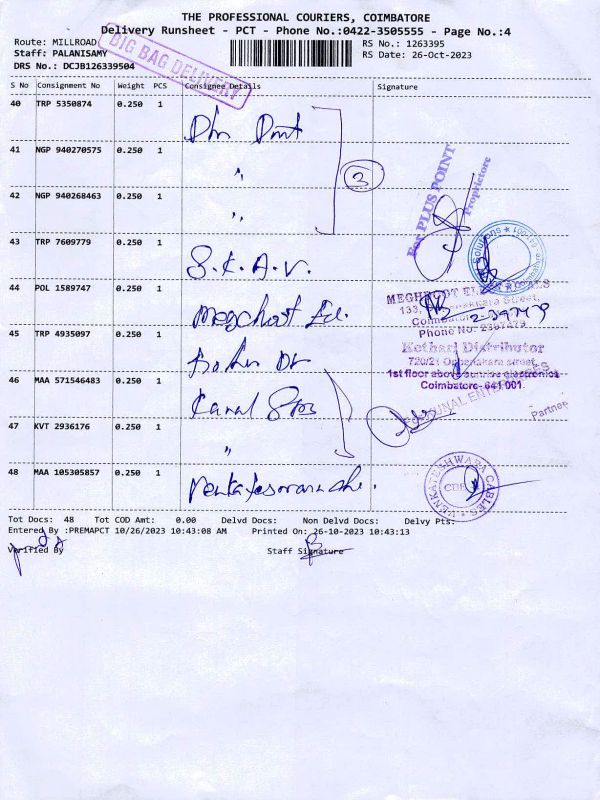 THE PROFESSIONAL COURIERS, COIMBATORE
Delivery Runsheet - PCT - Phone No.:0422-3505555 - Page No.:4
Route: MILLROAD
RS No.: 1263395
Staff: PALANISAMY
RS Date: 26-Oct-2023
DRS No.: DCJB126339504
BIG BAG DELIVERY
S No Consignment No Weight PCS Consignee Details Signature
40 TRP 5350874 0.250 1
41 NGP 940270575 0.250 1 "
3
42 NGP 940268463 0.250 1 "
For PLUS POINT
Proprietore
43 TRP 7609779 0.250 1 S.K.A.V.
44 POL 1589747 0.250 1
MEGHDOOT ELECTRICALS
Coimbatore
Phone No: 2397479
2397479
45 TRP 4935097 0.250 1
Kothari Distributor
720/21 Oppanakara street,
1st floor above sunrise electronics
Coimbatore-641 001
46 MAA 571546483 0.250 1
Partner
47 KVT 2936176 0.250 1 "
48 MAA 105305857 0.250 1
VENKATESHWARA CABLES
CBE
Tot Docs: 48 Tot COD Amt: 0.00 Delvd Docs: Non Delvd Docs: Delvy Pts:
Entered By :PREMAPCT 10/26/2023 10:43:08 AM Printed On: 26-10-2023 10:43:13
Verified By Staff Signature